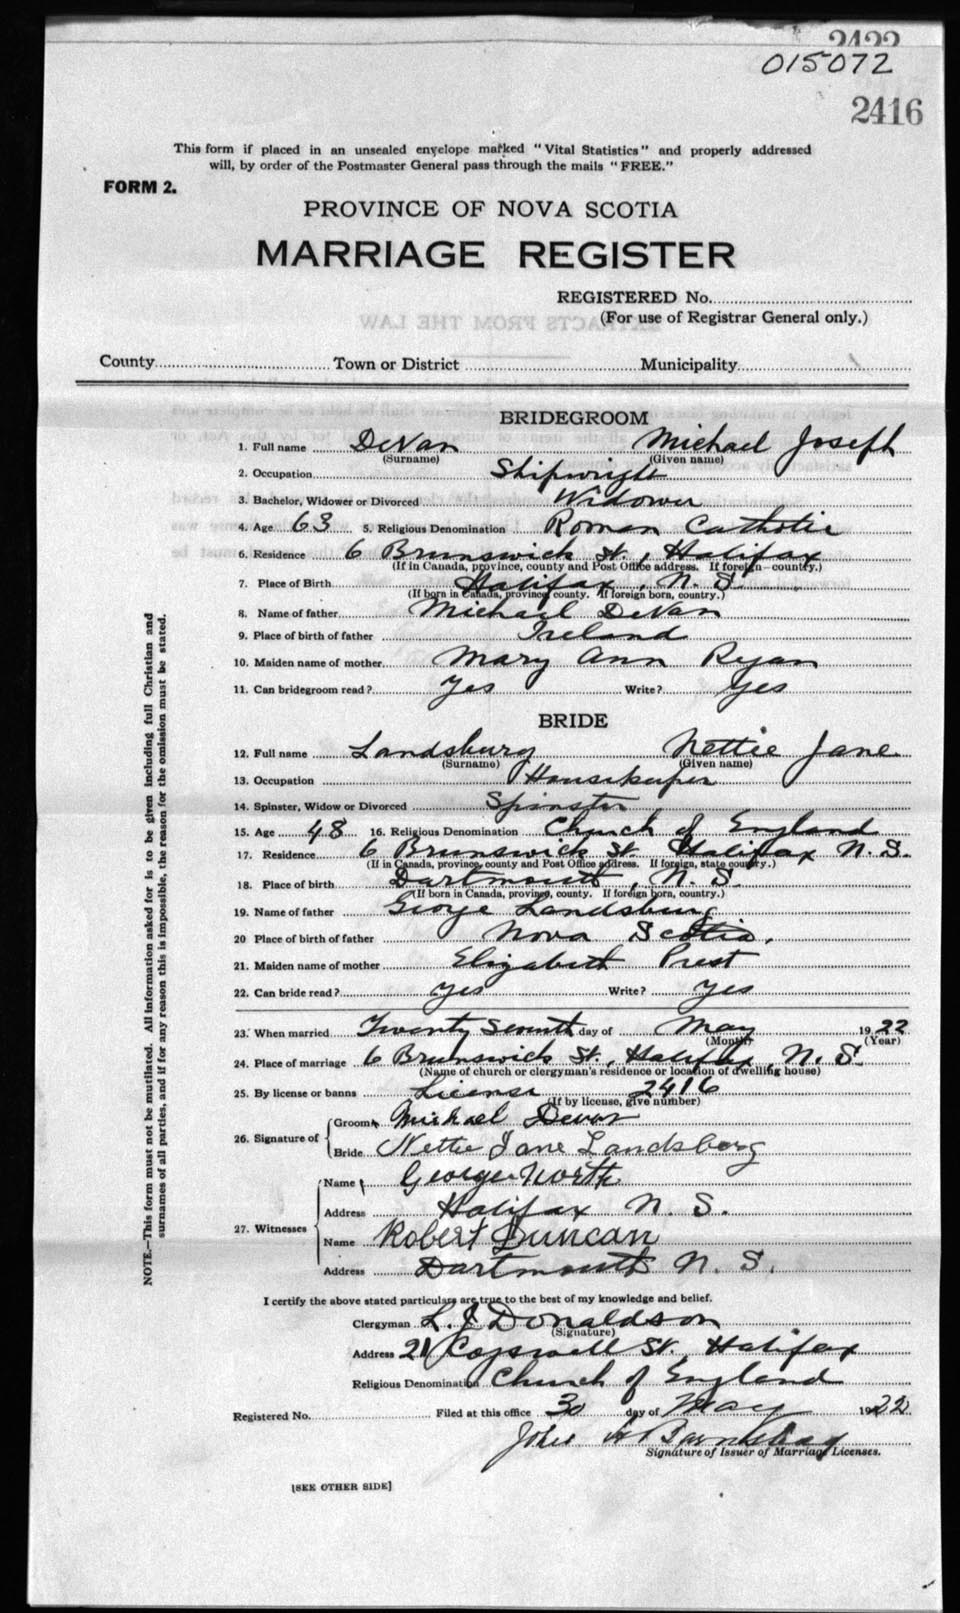 2422
015072
2416
This form if placed in an unsealed envelope marked "Vital Statistics" and properly addressed
will, by order of the Postmaster General pass through the mails "FREE."
FORM 2.
PROVINCE OF NOVA SCOTIA
MARRIAGE REGISTER
REGISTERED No.
(For use of Registrar General only.)
EXTRACTS FROM THE LAW
County Town or District Municipality
BRIDEGROOM
1. Full name DeVan Michael Joseph
(Surname) (Given name)
2. Occupation Shipwright
3. Bachelor, Widower or Divorced Widower
4. Age 63 5. Religious Denomination Roman Catholic
6. Residence 6 Brunswick St., Halifax
(If in Canada, province, county and Post Office address. If foreign—country.)
7. Place of Birth Halifax, N. S.
(If born in Canada, province, county. If foreign born, country.)
8. Name of father Michael DeVan
9. Place of birth of father Ireland
10. Maiden name of mother Mary Ann Ryan
11. Can bridegroom read? Yes Write? Yes
BRIDE
12. Full name Landsburg Nettie Jane
(Surname) (Given name)
13. Occupation Housekeeper
14. Spinster, Widow or Divorced Spinster
15. Age 48 16. Religious Denomination Church of England
17. Residence 6 Brunswick St. Halifax N. S.
(If in Canada, province, county and Post Office address. If foreign, state country.)
18. Place of birth Dartmouth, N. S.
(If born in Canada, province, county. If foreign born, country.)
19. Name of father George Landsburg
20 Place of birth of father Nova Scotia.
21. Maiden name of mother Elizabeth Prest
22. Can bride read? Yes Write? Yes
23. When married Twenty Seventh day of May 1922
(Month) (Year)
24. Place of marriage 6 Brunswick St., Halifax, N. S.
(Name of church or clergyman's residence or location of dwelling house)
25. By license or banns License 2416
(If by license, give number)
26. Signature of Groom Michael Devan
Bride Nettie Jane Landsberg
27. Witnesses Name George North
Address Halifax N. S.
Name Robert Duncan
Address Dartmouth N. S.
I certify the above stated particulars are true to the best of my knowledge and belief.
Clergyman L. J Donaldson
(Signature)
Address 21 Cogswell St. Halifax
Religious Denomination Church of England
Registered No. Filed at this office 30 day of May 1922
John H
Signature of Issuer of Marriage Licenses.
[SEE OTHER SIDE]
NOTE.—This form must not be mutilated. All information asked for is to be given including full Christian and
surnames of all parties, and if for any reason this is impossible, the reason for the omission must be stated.